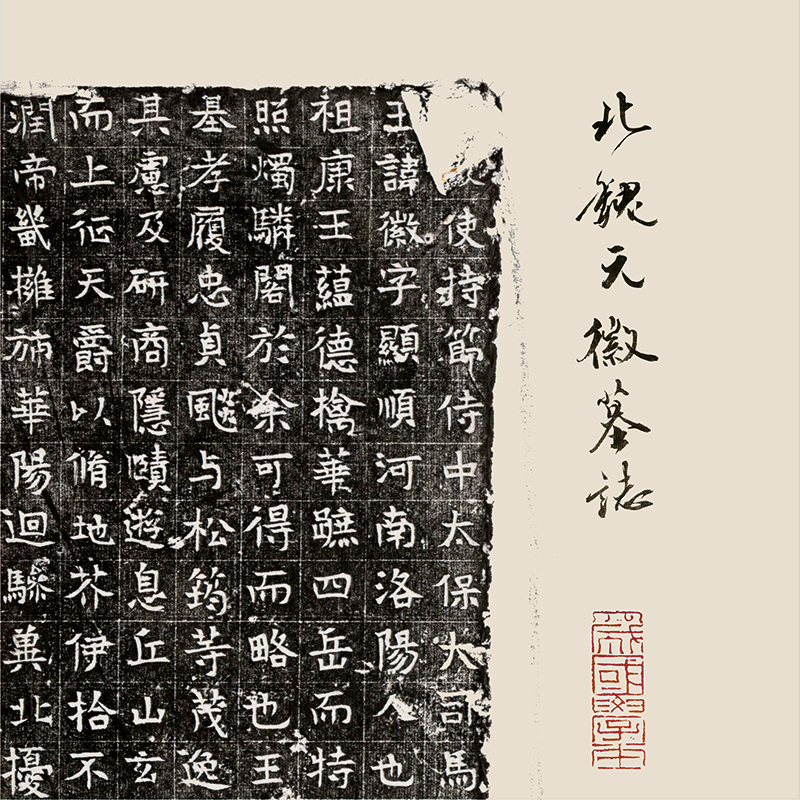 北魏元徽墓誌
使持節侍中太保大司馬
王諱徽字顯順河南洛陽人也
祖康王蘊德擒華蹠四岳而特
照燭驎閣於余可得而略也王
基孝履忠貞風与松筠等茂逸
其慮及研商隱賾遊息丘山玄
而上征天爵以脩地芥伊拾不
潤帝畿擁旆華陽迴騄冀北擾